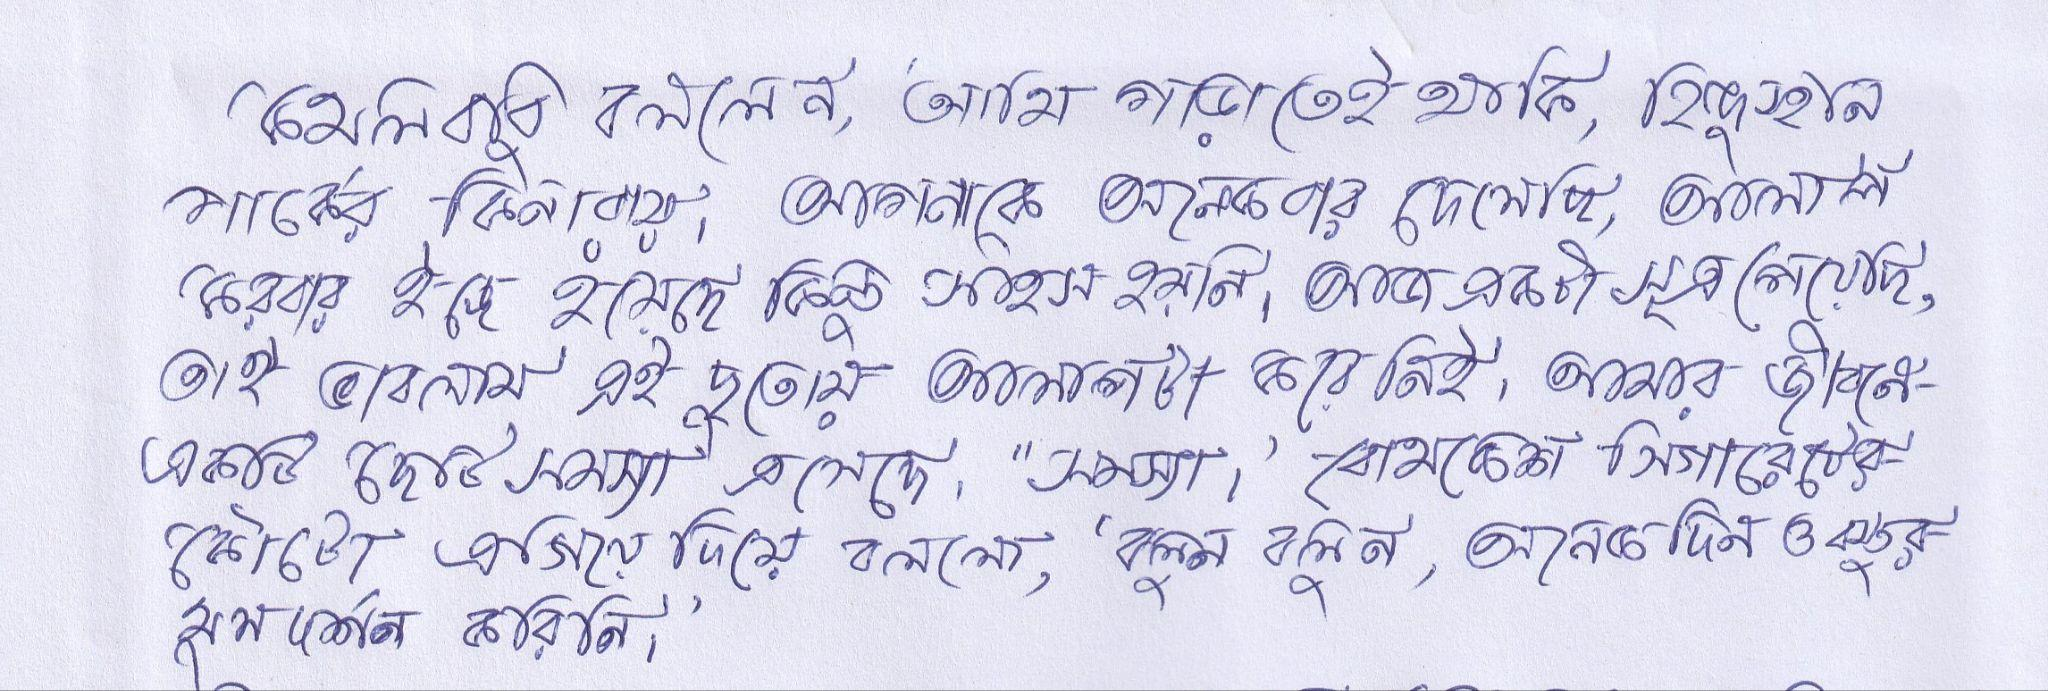 কমলবাবু বললেন, 'আমি পাড়াতেই থাকি, হিন্দুস্থান
পার্কের কিনারায়। আপনাকে অনেকবার দেখেছি, আলাপ
করবার ইচ্ছে হয়েছে কিন্তু সাহস হয়নি। আজ একটা সূত্র পেয়েছি,
তাই ভাবলাম এই ছুতোয় আলাপটা করে নিই। আমার জীবনে
একটি ছোট সমস্যা এসেছে। "সমস্যা।' ব্যোমকেশ সিগারেটের
কৌটো এগিয়ে দিয়ে বললো, 'বলুন বলুন, অনেকদিন ও বস্তুর
মুখ দর্শন করিনি।'